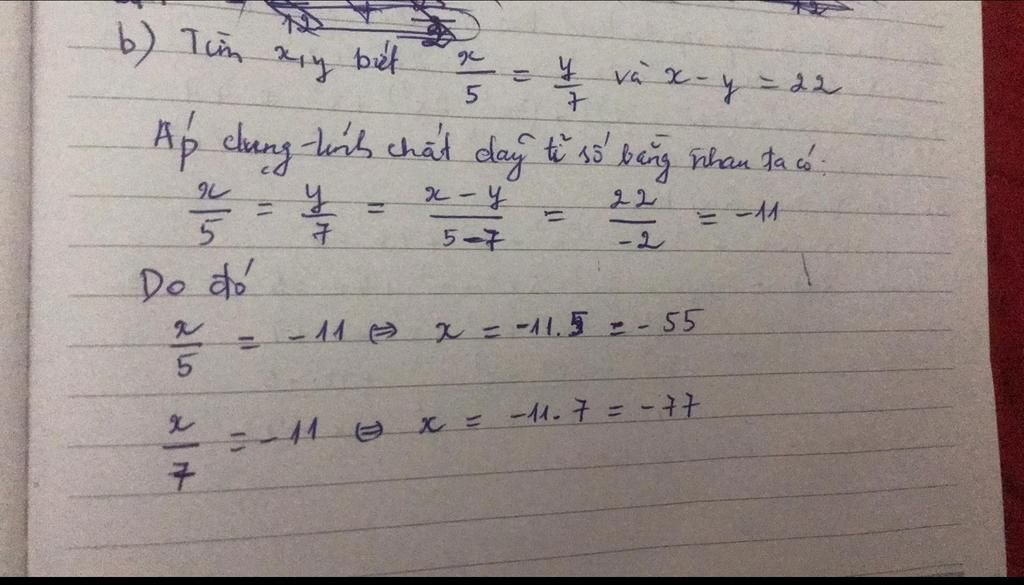 b) Tìm x, y biết x/5 = y/7 và x - y = 22
Áp dụng tính chất dãy tỉ số bằng nhau ta có:
x/5 = y/7 = (x - y)/(5 - 7) = 22/-2 = -11
Do đó
x/5 = -11 ⇔ x = -11.5 = -55
x/7 = -11 ⇔ x = -11.7 = -77